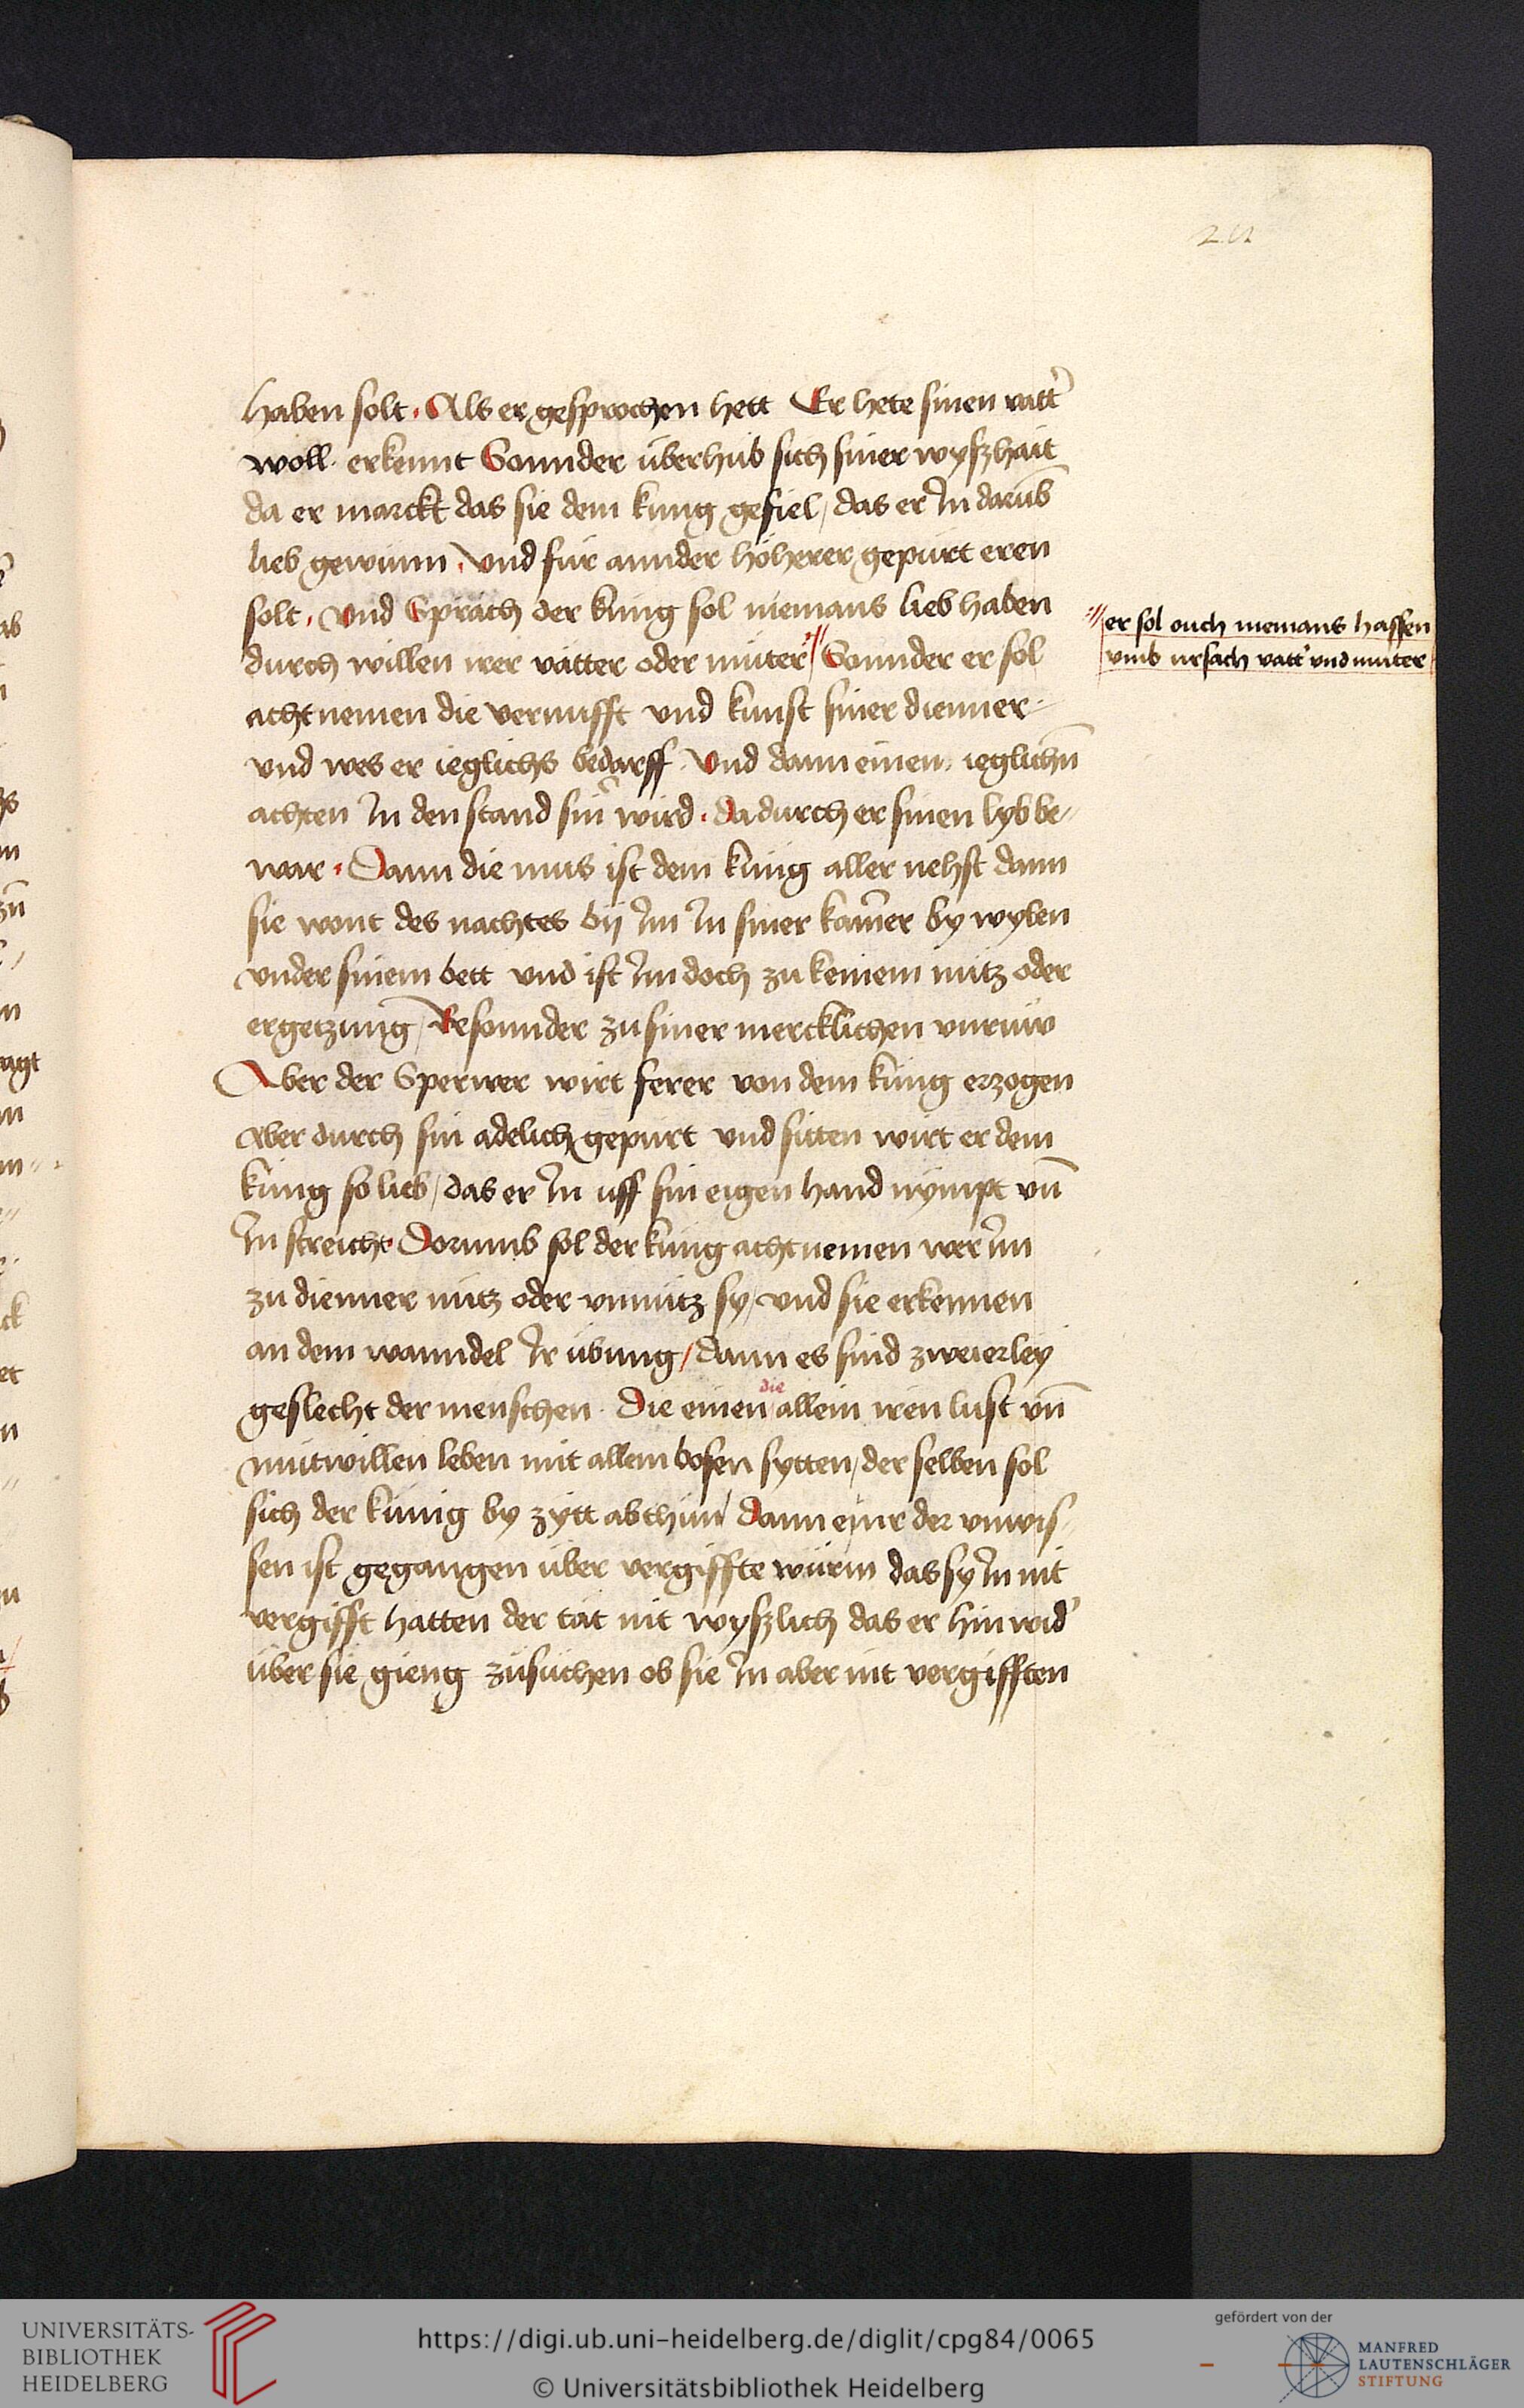 haben solt. Als er gesprochen hett Er hete sinen vatt'
woll. erkennt Sonnder überhub sich siner wyszhait
da er marckt das sie dem kung gefiel / das er In darub̄
lieb gewinn. Vnd für annder höherer gepürt eren
solt. Vnd Sprach der kung sol niemans lieb haben
durch willen irer vatter oder müter // Sonnder er sol
acht nemen die vernufft vnd kunst siner dienner
vnd wes er ieglichs bedarff. Vnd dann einen ieglichn̄
achten In den stand sin' wird. da durch er sinen lyb be//
war. Dann die mus ist dem kung aller nehst dann
sie wont des nachtes bij Im In siner kam̄er by wylen
vnder sinem bett vnd ist Im doch zu keinem nütz oder
ergetzung / Besonnder zu siner mercklichen vnruw
Aber der Sperwer wirt ferer von dem küng erzogen
Aber durch sin adelich gepürt vnd sitten wirt er dem
küng so lieb / das er In uff sin eigen hand nÿmpt vn̄
In streicht. Dorumb sol der küng acht nemen wer Im
zu dienner nütz oder vnnütz sy / vnd sie erkennen
an dem wanndel Ir übung / dann es sind zweierley
geslecht der menschen. Die einen die allein iren lust vn̄
mütwillen leben mit allem bosen sytten / der selben sol
sich der künig by zÿtt abthün dann einr der vnwis//
sen ist gegangen über vergiffte würm das sy In nit
vergifft hatten der tät nit wyszlich das er hin wid'
über sie gieng zü süchen ob sie In aber nit vergifften
// er sol ouch niemans hassen
vmb ursach vatt' vnd muter
https://digi.ub.uni-heidelberg.de/diglit/cpg84/0065
© Universitätsbibliothek Heidelberg
UNIVERSITÄTS-
BIBLIOTHEK
HEIDELBERG
gefördert von der
MANFRED
LAUTENSCHLÄGER
STIFTUNG